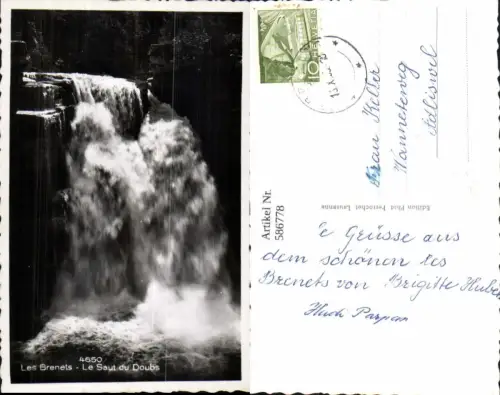 4650
Les Brenets - Le Saut du Doubs
HELVETIA
10
Artikel Nr.
586778
Frau Keller
Adliswil
Edition Phot Perrochet, Lausanne
e Grüsse aus
dem schönen les
Brenets von Brigitte Huber